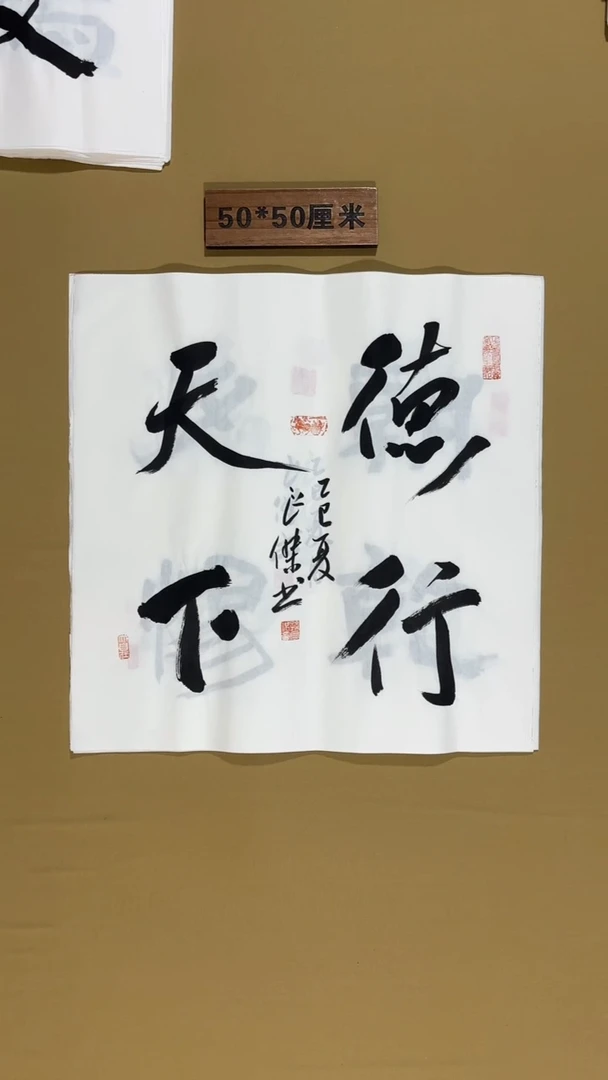 50*50厘米
德行
天下
乙巳夏
良傑书